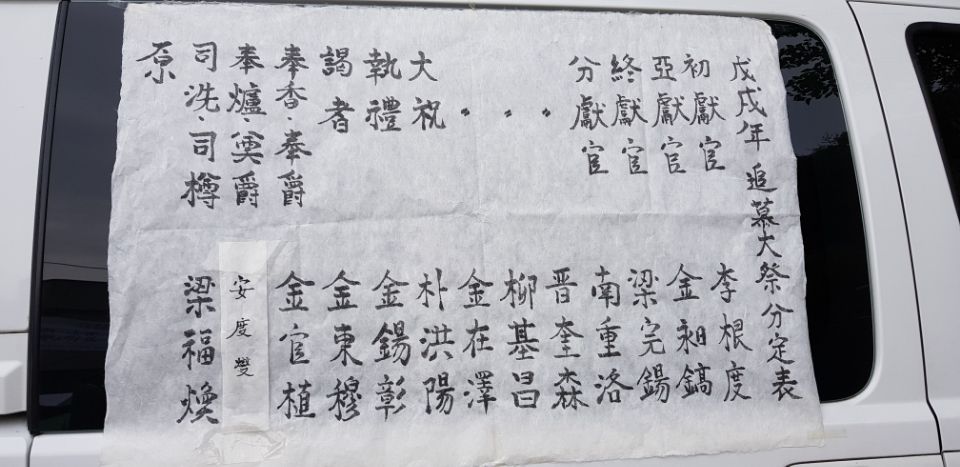 戊戌年 追慕大祭分定表
初獻官 李根度
亞獻官 金昶鎬
終獻官 梁完錫
分獻官 南重洛
〃 晋奎森
〃 柳基昌
〃 金在澤
大祝 朴洪陽
執禮 金錫彰
謁者 金東穆
奉香·奉爵 金官植
奉爐·奠爵 安度燮
司洗·司樽 梁福煥
原